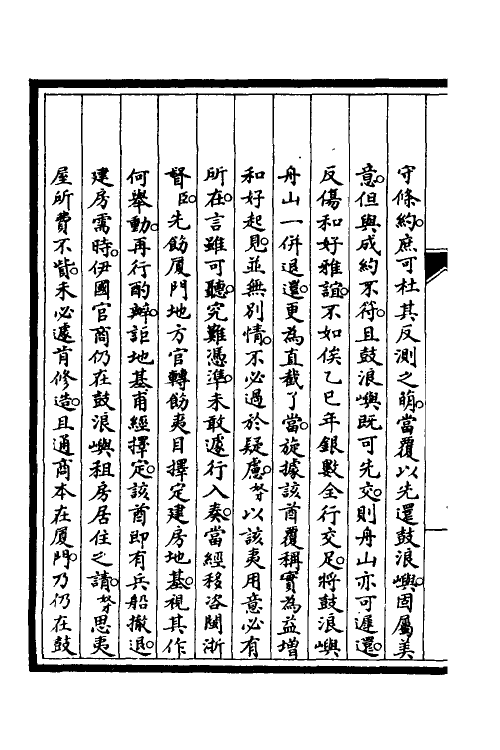 守條約。庶可杜其反測之萌。當覆以先還鼓浪嶼。固屬美
意。但與成約不符。且鼓浪嶼既可先交。則舟山亦可遲還。
反傷和好雅誼。不如俟乙巳年銀數全行交足。將鼓浪嶼
舟山一併退還。更為直截了當。旋據該酋覆稱實為益增
和好起見。並無別情。不必過於疑慮。等以該夷用意必有
所在。言雖可聽。究難憑準。未敢遽行入奏。當經移咨閩浙
督臣。先飭厦門地方官轉飭夷目擇定建房地基。視其作
何舉動。再行酌辦。詎地基甫經擇定。該酋即有兵船撤退。
建房需時。伊國官商仍在鼓浪嶼租房居住之請。等思夷
屋所費不貲。未必遽肯修造。且通商本在厦門。乃仍在鼓